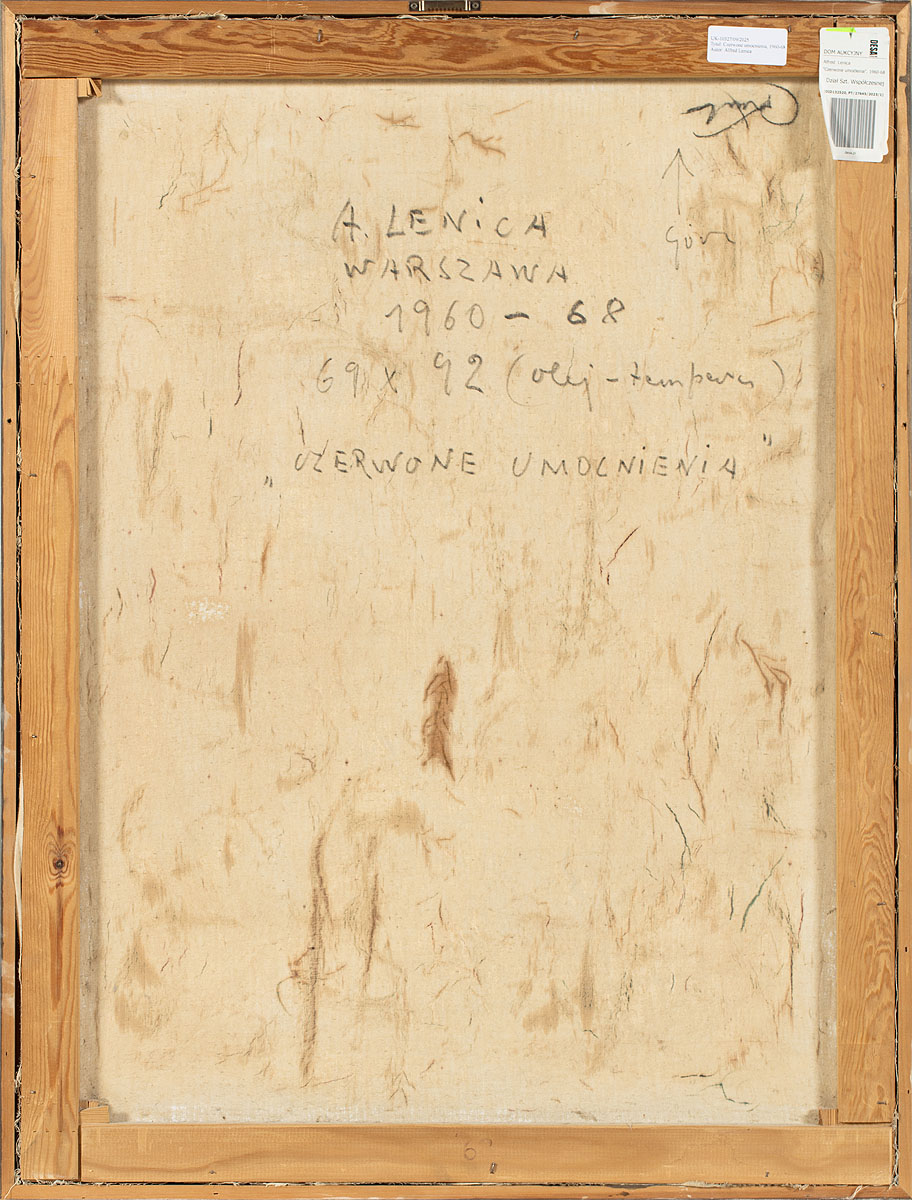 Tytuł: Czerwone umocnienia, 1960-68
Autor: Alfred Lenica
DESA
DOM AUKCYJNY
Alfred Lenica
"Czerwone umocnienia", 1960-68
Dział Szt. Współczesnej
góra
A. LENICA
WARSZAWA
1960 - 68
69 x 92 (olej - tempera)
„CZERWONE UMOCNIENIA"
6